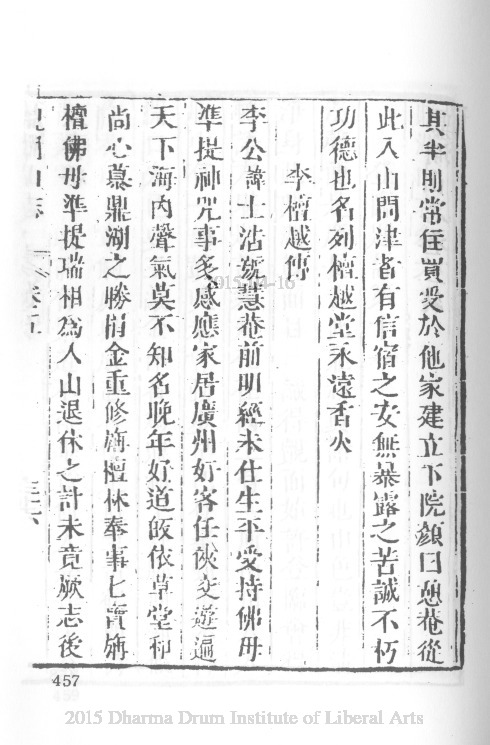 其半則常住買受於他家建立下院顏曰憩菴從
此入山問津者有信宿之安無暴露之苦誠不朽
功德也名列檀越堂永遠香火
李檀越傳
李公諱士沽號慧菴前明經未仕生平愛持佛毋
準提神咒事多感應家居廣州好客任俠交遊遍
天下海內聲氣莫不知名晚年好道皈依草堂和
尚心慕鼎湖之勝捐金重修旃檀林奉事七寶旃
檀佛毋準提瑞相為入山退休之計未竟厥志後
山志 卷五
457
2015 Dharma Drum Institute of Liberal Arts